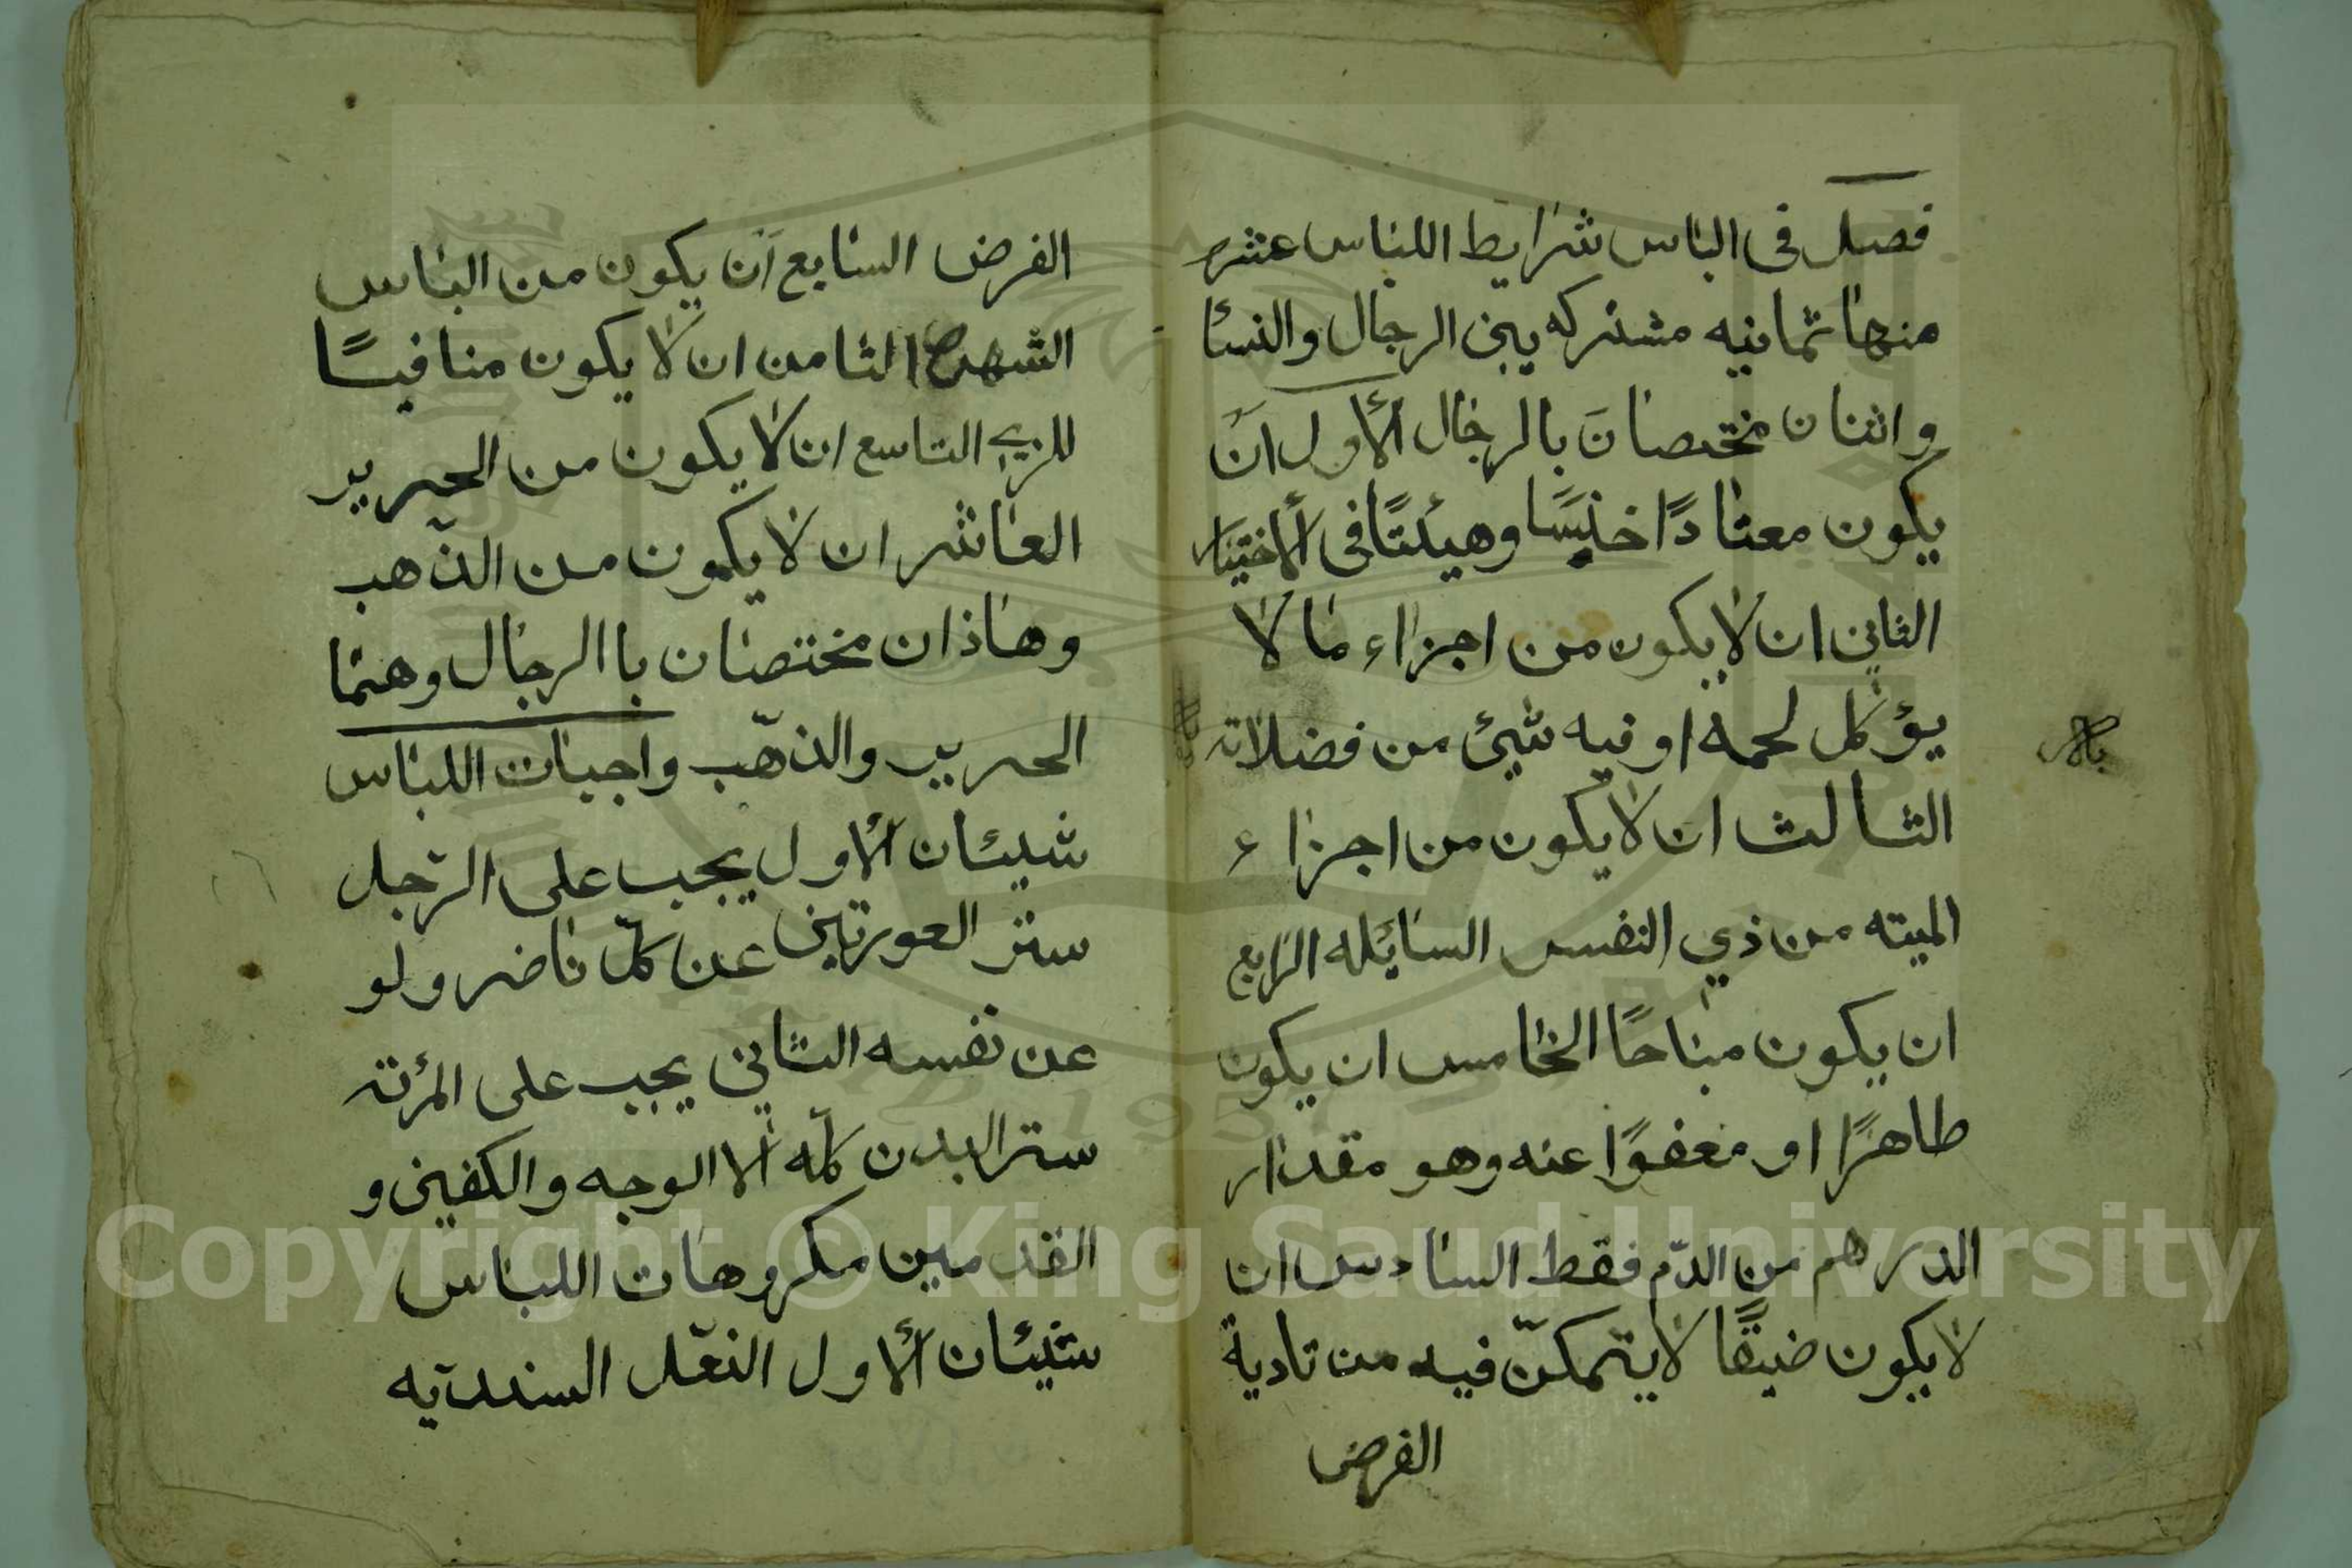 فصل في الباس شرايط اللباس عشره
منها ثمانيه مشتركه بين الرجال والنسأ
واثنان مختصان بالرجال ألاول ان
يكون معتادًا خنسًا وهيئتًا في ألاختيار
الثاني ان لا يكون من اجزاء ما لا
يؤكل لحمه او فيه شيئ من فضلاته
الثالث ان لا يكون من اجزاء
الميته من ذي النفس السائله الرابع
ان يكون مباحًا الخامس ان يكون
طاهرًا او معفوًا عنه وهو مقدار
الدرهم من الدّم فقط السادس ان
لا يكون ضيقًا لا يتمكنّ فيه من تادية
الفرض
الفرض السابع آن يكون من الباس
الشهره الثامن ان لا يكون منافيًا
للزي التاسع ان لا يكون من الحرير
العاشر ان لا يكون من الذّهب
وهاذان مختصان باالرجال وهما
الحرير والذهّب واجبات اللباس
شيئان ألاول يجب على الرّجل
ستر العورتين عن كلّ ناضر ولو
عن نفسه الثاني يجب على المرئة
ستر البدن كلّه ألا الوجه والكفين و
القدمين مكروهات اللباس
شيئان ألاول النعّل السنديّه
Copyright © King Saud University
1957